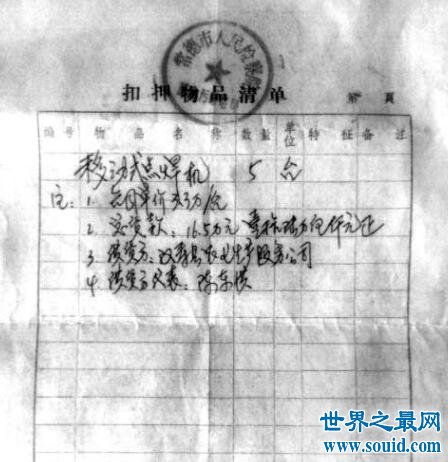 常德市人民检察院
扣押物品清单 第 頁
编号 物品名称 数量 单位 特征 备注
移动式点焊机 5 台
注: 1. 合同单价3.3万/台
2. 总货款: 16.5万元 壹拾陆万伍仟元正
3. 供货方: 汉寿县农电生产服务公司
4. 供货方代表: 陈
世界之最网
www.souid.com